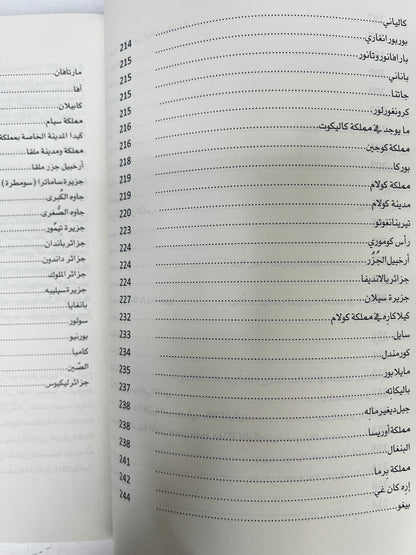 كالياني 214
بوربورانغاري 215
بارافانوروتانور 215
باناني 215
جاتنا 215
كرونغورلور 216
ما يوجد في مملكة كاليكوت 216
مملكة كوجين 216
بوركا 218
مملكة كولام 219
مدينة كولام 220
تيرينانغوتو 223
رأس كوموري 224
أرخبيل الجُزُر 224
جزائر بالانديفا 224
جزيرة سيلان 227
كيلاكاره في مملكة كولام 232
سابل 234
كورمندل 234
مايلابور 235
باليكاته 237
جبل ديغيرماله 238
مملكة أوريسا 238
البنغال 238
مملكة برما 241
إره كان غي 242
بيغو 244
مارتافان
آفا
كابيلان
مملكة سيام
كيدا المدينة الخاصة بمملكة
مملكة ومدينة ملقا
أرخبيل جزر ملقا
جزيرة ساماترا (سومطرة)
جاوه الكُبرى
جاوه الصُّغرى
جزيرة تيمّور
جزائر باندان
جزائر داندون
جزائر الملوك
جزيرة سيليبه
بانغايا
سولور
بورنيو
كامبا
الصّين
جزائر ليكيوس